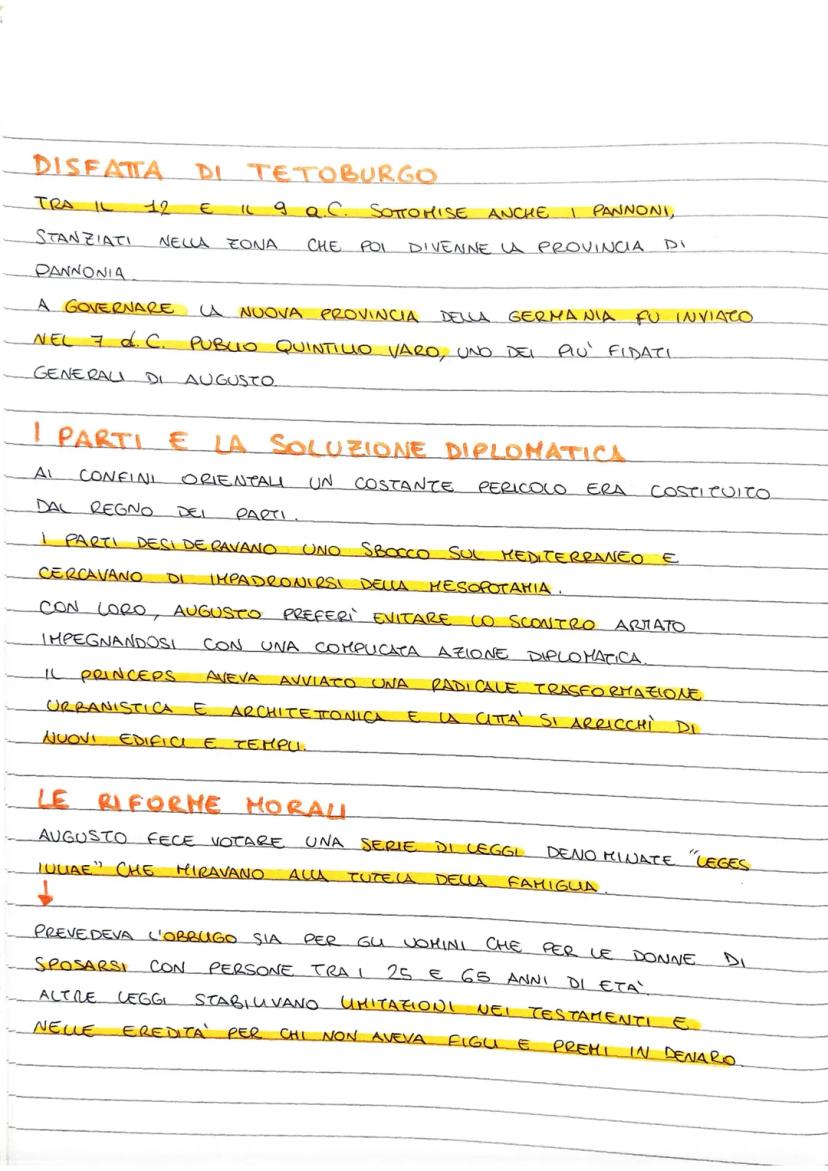 DISFATTA DI TETOBURGO
TRA IL 12 E IL 9 a.C. SOTTOMISE ANCHE I PANNONI,
STANZIATI NELLA ZONA CHE POI DIVENNE LA PROVINCIA DI
PANNONIA.
A GOVERNARE LA NUOVA PROVINCIA DELLA GERMANIA FU INVIATO
NEL 7 d.C. PUBLIO QUINTILIO VARO, UNO DEI PIU' FIDATI
GENERALI DI AUGUSTO.
I PARTI E LA SOLUZIONE DIPLOMATICA
AI CONFINI ORIENTALI UN COSTANTE PERICOLO ERA COSTITUITO
DAL REGNO DEI PARTI.
I PARTI DESIDERAVANO UNO SBOCCO SUL MEDITERRANEO E
CERCAVANO DI IMPADRONIRSI DELLA MESOPOTAMIA.
CON LORO, AUGUSTO PREFERÌ EVITARE LO SCONTRO ARMATO
IMPEGNANDOSI CON UNA COMPLICATA AZIONE DIPLOMATICA.
IL PRINCEPS AVEVA AVVIATO UNA RADICALE TRASFORMAZIONE
URBANISTICA E ARCHITETTONICA E LA CITTA' SI ARRICCHÌ DI
NUOVI EDIFICI E TEMPLI.
LE RIFORME MORALI
AUGUSTO FECE VOTARE UNA SERIE DI LEGGI DENOMINATE "LEGES
IULIAE" CHE MIRAVANO ALLA TUTELA DELLA FAMIGLIA.
↓
PREVEDEVA L'OBBLIGO SIA PER GLI UOMINI CHE PER LE DONNE DI
SPOSARSI CON PERSONE TRA I 25 E 65 ANNI DI ETA'.
ALTRE LEGGI STABILIVANO LIMITAZIONI NEI TESTAMENTI E
NELLE EREDITA' PER CHI NON AVEVA FIGLI E PREMI IN DENARO.